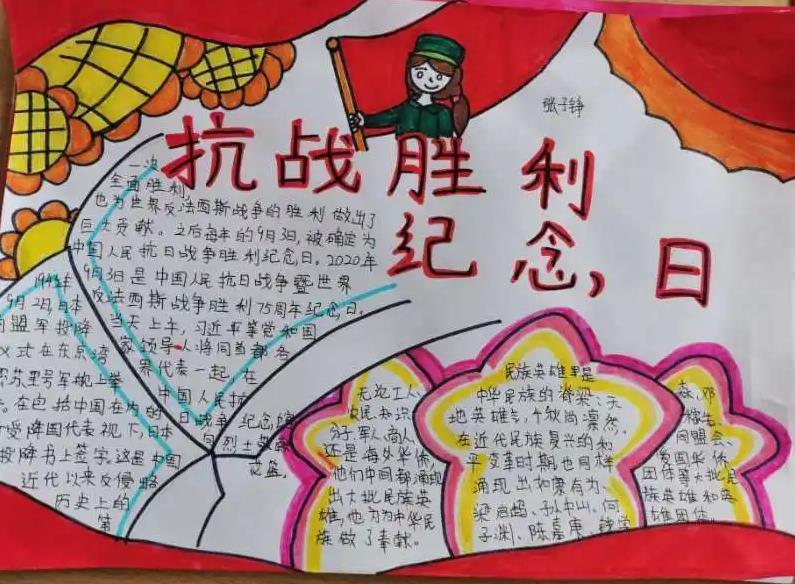 张子铮
抗战胜利
纪念日
1945年
9月2日,日本
向盟军投降
仪式在东京湾
密苏里号军舰上举
。在包括中国在内的
受降国代表视下,日本
投降书上签字。这是中国
近代以来反侵略
历史上的
第
一次
全面胜利
也为世界反法西斯战争的胜利做出了
巨大贡献。之后每年的9月3日,被确定为
中国人民抗日战争胜利纪念日。2020年
9月3日是中国人民抗日战争暨世界
反法西斯战争胜利75周年纪念日。
当天上午,习近平等党和国
家领导人将同首都各
界代表一起,在
中国人民抗
日战争纪念馆
向烈士敬献
花篮。
无论工人
农民知识
分子,军人,商人
还是海外华侨,
他们中间都涌现
出大批民族英
雄,也为为中华民
族做了奉献。
民族英雄里是
中华民族的脊梁,天
地英雄气,千秋尚凛然。
在近代民族复兴的和
平变革时期也同样
涌现出如康有为、
梁启超、孙中山、何
子渊、陈嘉庚、钱学
森、邓
稼先、
同盟会、
爱国华侨
团体等大批民
族英雄和英
雄团体。